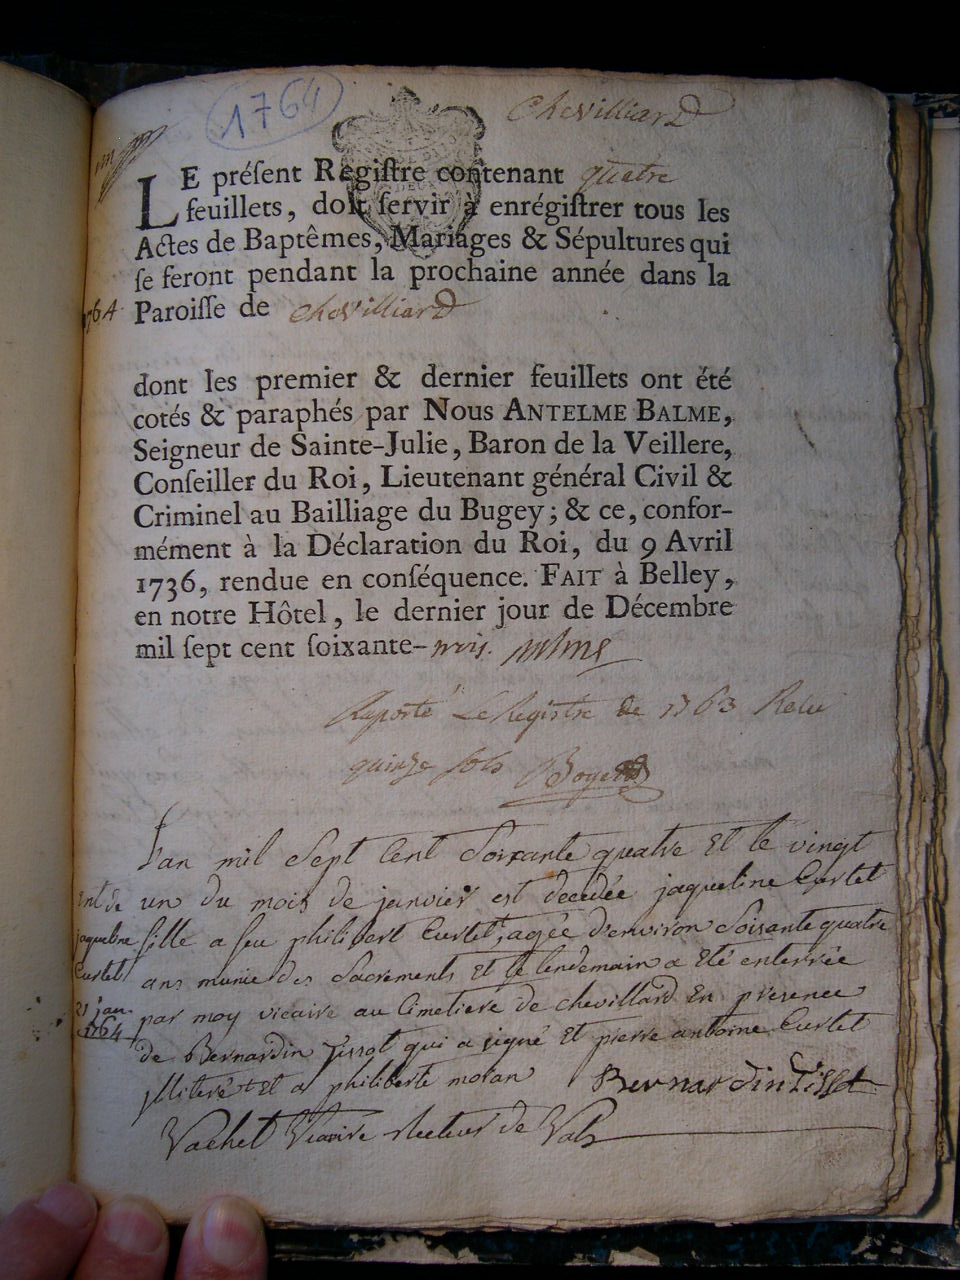 1764
Chevilliard
LE préſent Regiſtre contenant quatre
feuillets, doit ſervir à enrégiſtrer tous les
Actes de Baptêmes, Mariages & Sépultures qui
ſe feront pendant la prochaine année dans la
1764 Paroiſſe de Chevilliard
dont les premier & dernier feuillets ont été
cotés & paraphés par Nous ANTELME BALME,
Seigneur de Sainte-Julie, Baron de la Veillere,
Conſeiller du Roi, Lieutenant général Civil &
Criminel au Bailliage du Bugey; & ce, confor-
mément à la Déclaration du Roi, du 9 Avril
1736, rendue en conſéquence. FAIT à Belley,
en notre Hôtel, le dernier jour de Décembre
mil ſept cent ſoixante-trois.
Apporté Le Registre de 1763 Relu
quinze sols
L'an mil Sept Cent Soixante quatre Et le vingt
un du mois de janvier est decedée jaqueline Curtet
fille a feu philibert Curtet, agée d'environ Soixante quatre
ans munie des Sacrements Et le lendemain a Eté enterrée
par moy vicaire au Cimetiere de chevillard En presence
de Bernardin tissot qui a signé Et pierre antoine Curtet
illiteré Et a philiberte moran Bernardin Tissot
Vachet Vicaire
jaqueline
Curtet
21 jan.
1764